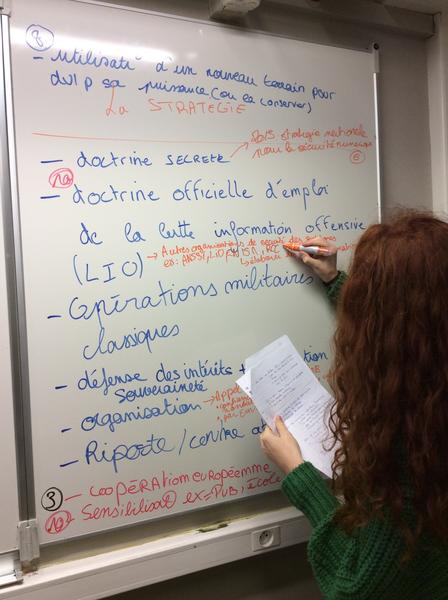 8
- utilisati° d'un nouveau terrain pour
dvlp sa puissance (ou la conserver)
La STRATEGIE
2015 strategie nationale
pour la sécurité numérique
- doctrine SECRETE
- doctrine officielle d'emploi
de la lutte information offensive
(LIO) → Autres organisations de
ex: ANSSI, LID
- Opérations militaires
classiques
- défense des intérêts +
souveraineté
- organisation →
- Riposte / contre
3 - coopération européenne
- Sensibilisat° ex = PUB, école